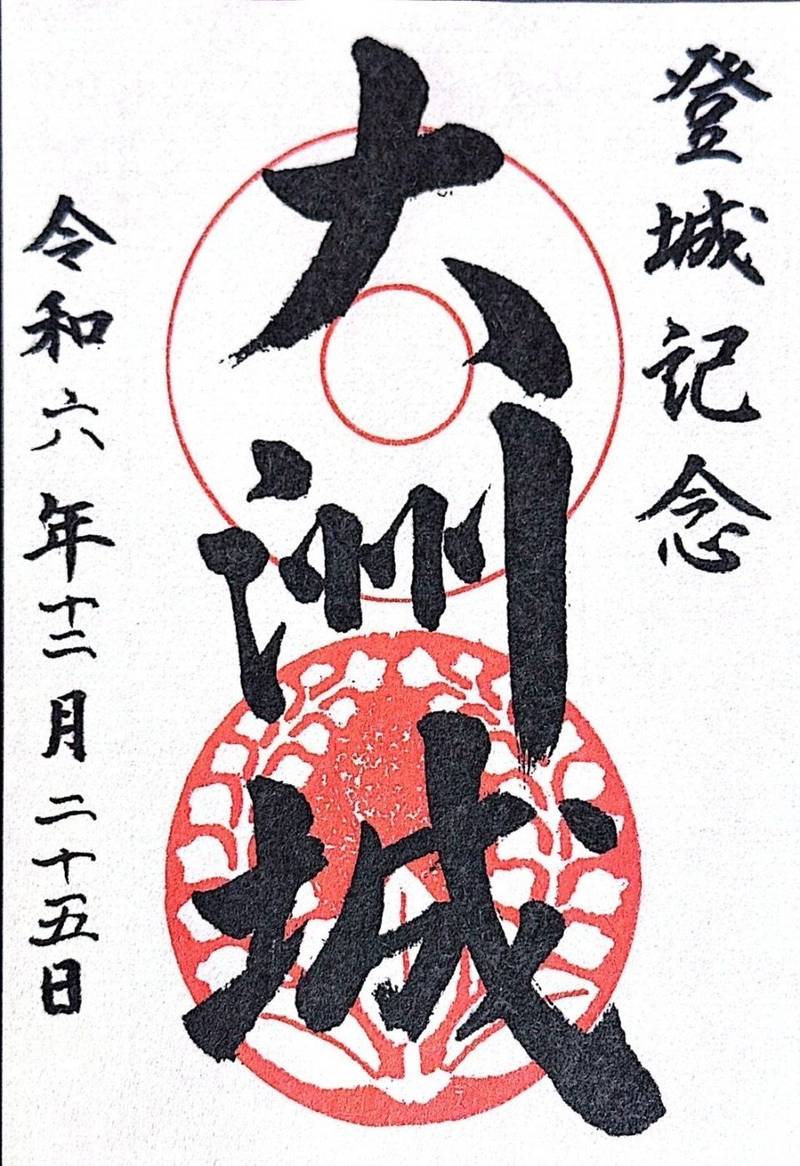 登城記念
大洲城
令和六年十二月二十五日